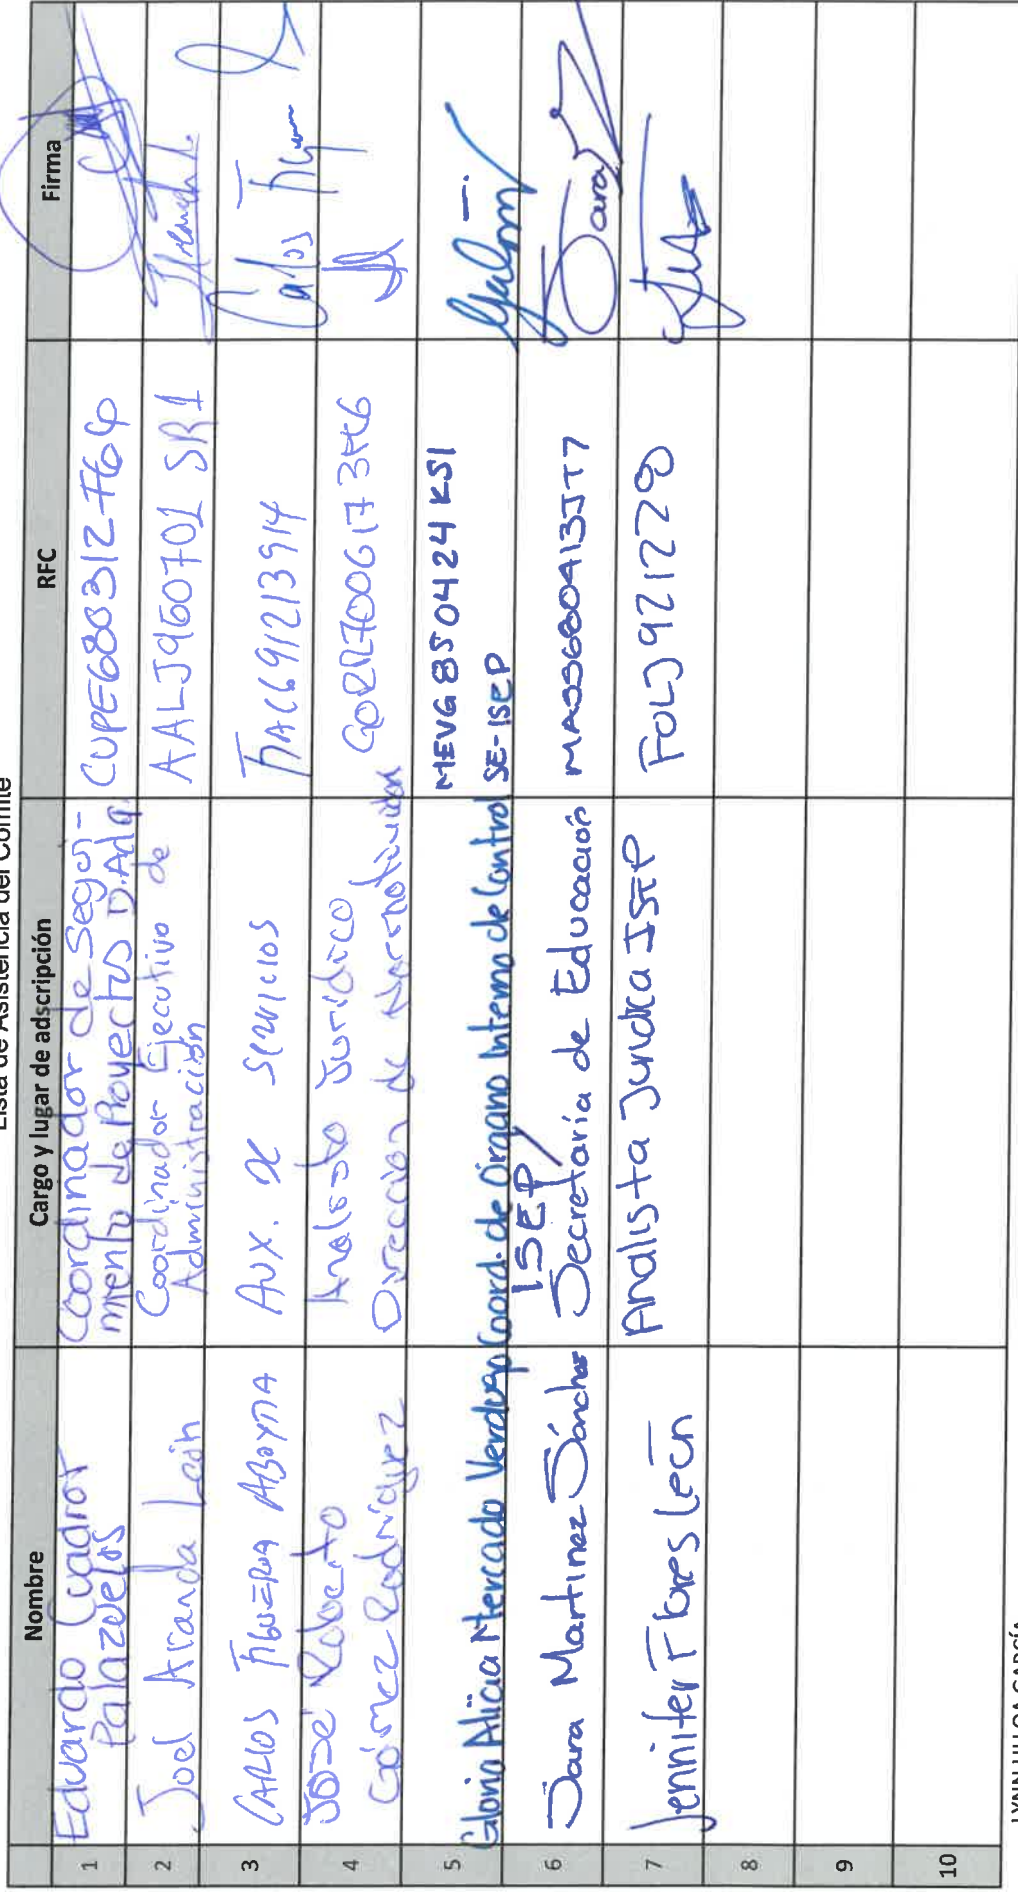 Lista de Asistencia del Comité
Nombre
Cargo y lugar de adscripción
RFC
Firma
1
Eduardo Cuadros
Palazuelos
Coordinador de Segui-
miento de Proyectos D. Adq.
CUPE680312
2
Joel Aranda León
Coordinador Ejecutivo de
Administración
AALJ960701 SR1
3
CARLOS
Aux. de Servicios
Carlos
4
José Roberto
Gómez Rodríguez
Analista Jurídico
Dirección de Normatividad
5
Gloria Alicia Mercado Verdugo
Coord. de Órgano Interno de Control SE-ISEP
MEVG850424KS1
6
Sara Martinez Sánchez
ISEP/
Secretaría de Educación
MASS680413JT7
Sara
7
Jennifer Flores León
Analista Jurídica ISEP
FOLJ921228
8
9
10
LYNN ULLOA GARCÍA